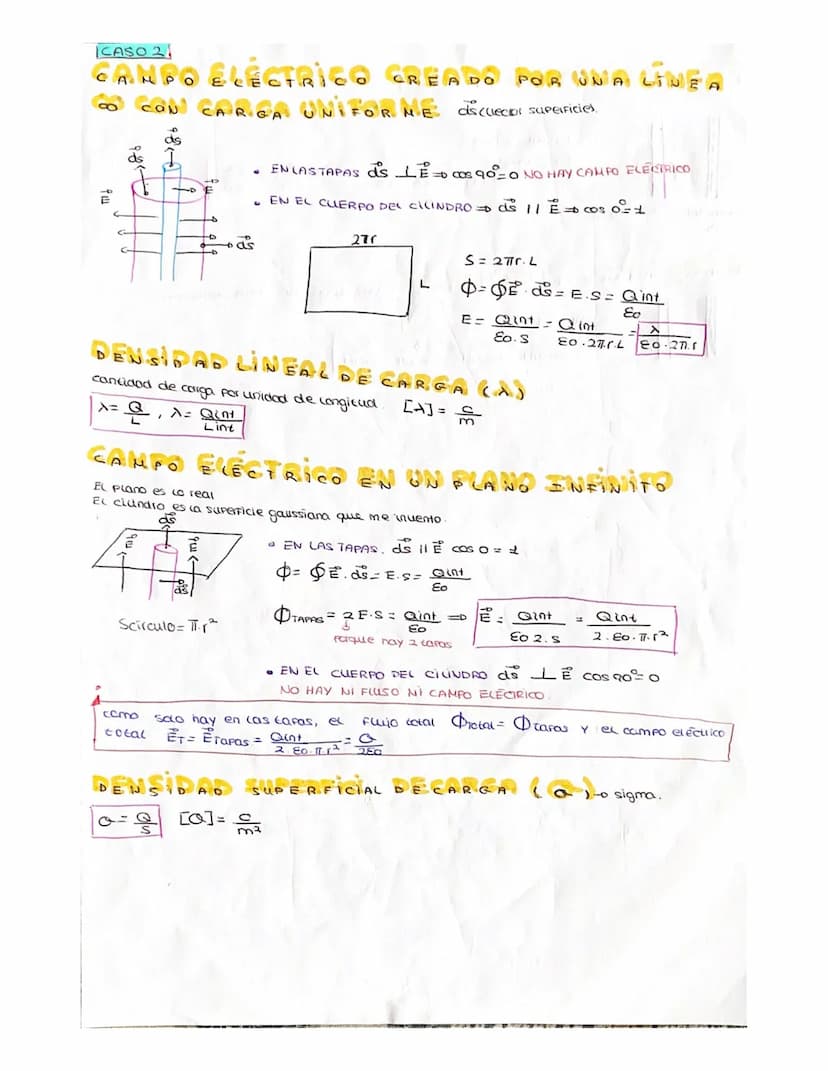 CASO 2
CAMPO ELÉCTRICO CREADO POR UNA LÍNEA
∞ CON CARGA UNIFORME
ds (vector superficie).
ds
ds
E
E
ds
• EN LAS TAPAS ds ⊥ E ⇒ cos 90° = 0 NO HAY CAMPO ELÉCTRICO
• EN EL CUERPO DEL CILINDRO ⇒ ds || E ⇒ cos 0° = 1
2πr
L
S = 2πr·L
Φ = ∮E · ds = E·S = Qint/εo
E = Qint/εo·S = Qint/εo·2πr·L = λ/εo·2π·r
DENSIDAD LINEAL DE CARGA (λ)
cantidad de carga por unidad de longitud. [λ] = C/m
λ = Q/L , λ = Qint/Lint
CAMPO ELÉCTRICO EN UN PLANO INFINITO
El plano es lo real
El cilindro es la superficie gaussiana que me invento.
ds
E
E
ds
Scírculo = π·r²
• EN LAS TAPAS. ds || E cos 0 = 1
Φ = ∮E · ds = E·S = Qint/εo
ΦTAPAS = 2 E·S = Qint/εo ⇒ E = Qint/εo 2·S = Qint/2·εo·π·r²
porque hay 2 tapas
• EN EL CUERPO DEL CILINDRO ds ⊥ E cos 90° = 0
NO HAY NI FLUJO NI CAMPO ELÉCTRICO.
como solo hay en las tapas, el flujo total Φtotal = Φtapas y el campo eléctrico
total ET = ETapas = Qint/2·εo·π·r² = σ/2εo
DENSIDAD SUPERFICIAL DE CARGA (σ) → sigma.
σ = Q/S [σ] = C/m²